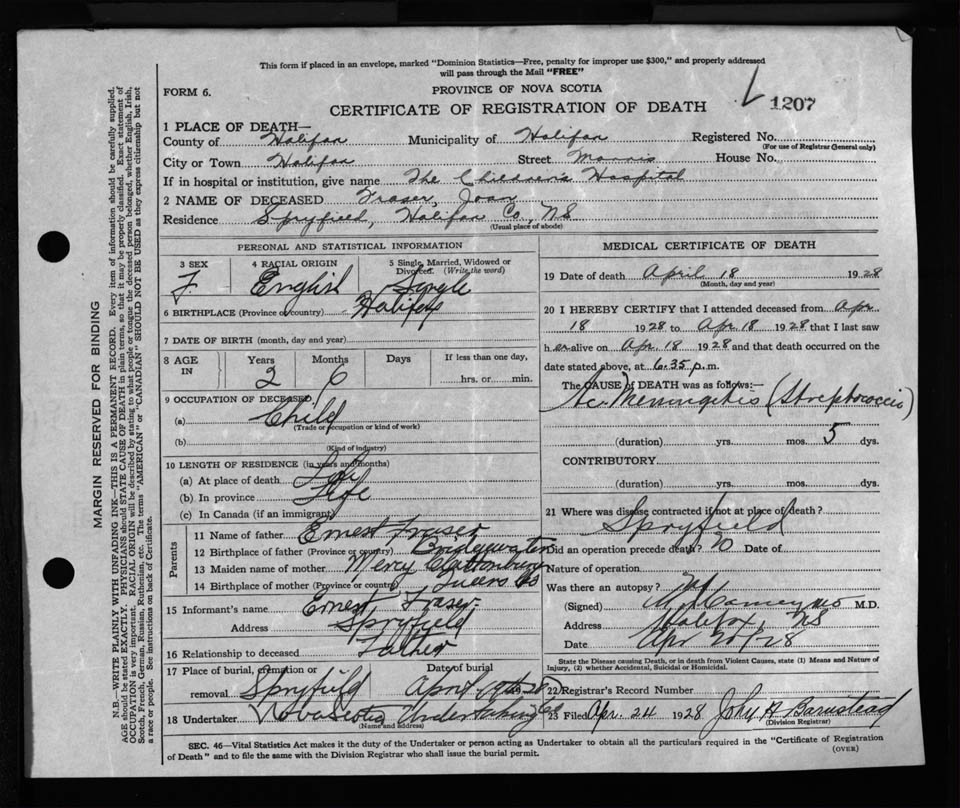 This form if placed in an envelope, marked "Dominion Statistics—Free, penalty for improper use $300," and properly addressed
will pass through the Mail "FREE"
FORM 6.
PROVINCE OF NOVA SCOTIA
CERTIFICATE OF REGISTRATION OF DEATH
1207
1 PLACE OF DEATH—
County of Halifax Municipality of Halifax Registered No.
(For use of Registrar General only)
City or Town Halifax Street Morris House No.
If in hospital or institution, give name The Children's Hospital
2 NAME OF DECEASED Fraser, Joan
Residence Spryfield, Halifax Co., NS
(Usual place of abode)
PERSONAL AND STATISTICAL INFORMATION
3 SEX 4 RACIAL ORIGIN 5 Single, Married, Widowed or
Divorced. (Write the word)
F. English Single
6 BIRTHPLACE (Province or country) Halifax
7 DATE OF BIRTH (month, day and year)
8 AGE IN Years Months Days If less than one day,
2 6 hrs. or min.
9 OCCUPATION OF DECEASED,
(a) Child
(Trade or occupation or kind of work)
(b)
(Kind of industry)
10 LENGTH OF RESIDENCE (in years and months)
(a) At place of death
(b) In province Life
(c) In Canada (if an immigrant)
Parents
11 Name of father Ernest Fraser
12 Birthplace of father (Province or country) Bridgewater
13 Maiden name of mother Mercy
14 Birthplace of mother (Province or country) Queens Co
15 Informant's name Ernest Fraser
Address Spryfield
16 Relationship to deceased Father
17 Place of burial, cremation or Date of burial
removal Spryfield April 28
18 Undertaker Nova Scotia Undertaking Co
(Name and address)
MEDICAL CERTIFICATE OF DEATH
19 Date of death April 18 1928
(Month, day and year)
20 I HEREBY CERTIFY that I attended deceased from Apr
18 1928 to Apr 18 1928 that I last saw
her alive on Apr 18 1928 and that death occurred on
date stated above, at 6.35 p.m.
The CAUSE of DEATH was as follows:—
Ac. Meningitis (Streptococcic)
(duration) yrs. mos. 5 dys.
CONTRIBUTORY
(duration) yrs. mos. dys.
21 Where was disease contracted if not at place of death?
Spryfield
Did an operation precede death? No Date of
Nature of operation
Was there an autopsy? No
(Signed) M.D.
Address Halifax, NS
Date Apr 20/28
State the Disease causing Death, or in death from Violent Causes, state (1) Means and Nature of
Injury, (2) whether Accidental, Suicidal or Homicidal.
22 Registrar's Record Number
23 Filed Apr. 24 1928 John A Barnstead
(Division Registrar)
SEC. 46—Vital Statistics Act makes it the duty of the Undertaker or person acting as Undertaker to obtain all the particulars required in the "Certificate of Registration
of Death" and to file the same with the Division Registrar who shall issue the burial permit.
(OVER)
MARGIN RESERVED FOR BINDING
N.B.—WRITE PLAINLY WITH UNFADING INK—THIS IS A PERMANENT RECORD. Every item of information should be carefully supplied.
AGE should be stated EXACTLY. PHYSICIANS should STATE CAUSE OF DEATH in plain terms, so that it may be properly classified. Exact statement of
OCCUPATION is very important. RACIAL ORIGIN will be described by stating to what people or tongue the deceased person belonged, whether English, Irish,
Scotch, French, German, Russian, Ruthenian, etc. The terms "AMERICAN" or "CANADIAN" SHOULD NOT BE USED as they express citizenship but not
a race or people. See instructions on back of Certificate.